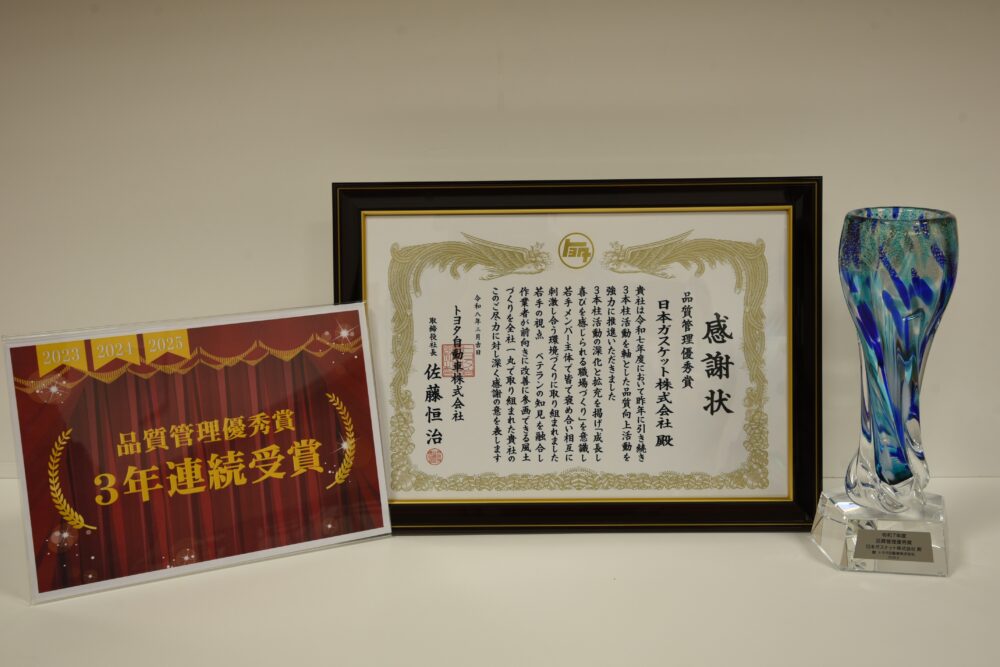 2023 2024 2025
品質管理優秀賞
3年連続受賞
トヨタ
感謝状
品質管理優秀賞
日本ガスケット株式会社 殿
貴社は令和七年度において昨年に引き続き
3本柱活動を軸とした品質向上活動を
強力に推進いただきました
3本柱活動の深化と拡充を掲げ「成長し
喜びを感じられる職場づくり」を意識し
若手メンバー主体で皆で褒め合い相互に
刺激し合う環境づくりに取り組まれました
若手の視点 ベテランの知見を融合し
作業者が前向きに改善に参画できる風土
づくりを全社一丸で取り組まれた貴社の
このご尽力に対し深く感謝の意を表します
令和八年二月吉日
トヨタ自動車株式会社
取締役社長 佐藤恒治
令和7年度
品質管理優秀賞
日本ガスケット株式会社 殿
トヨタ自動車株式会社